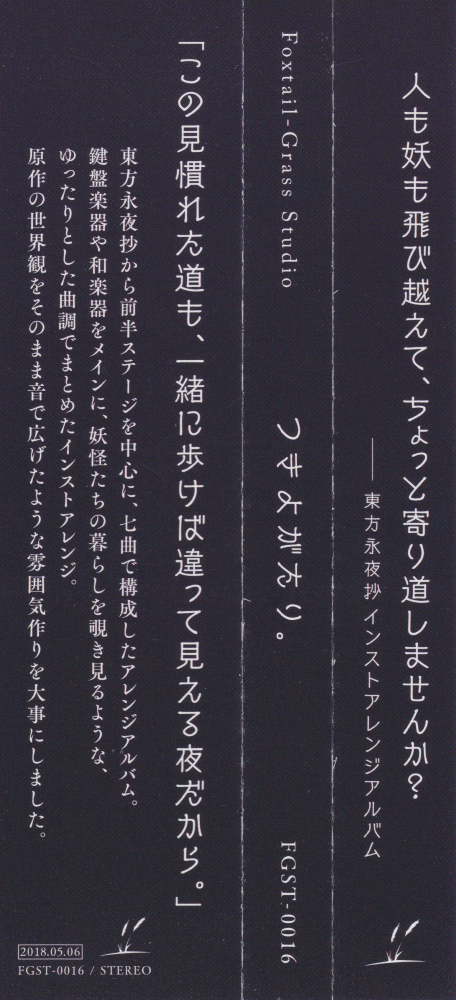 人も妖も飛び越えて、ちょっと寄り道しませんか?
――東方永夜抄 インストアレンジアルバム
Foxtail-Grass Studio
つきよがたり。
FGST-0016
「この見慣れた道も、一緒に歩けば違って見える夜だから。」
東方永夜抄から前半ステージを中心に、七曲で構成したアレンジアルバム。
鍵盤楽器や和楽器をメインに、妖怪たちの暮らしを覗き見るような、
ゆったりとした曲調でまとめたインストアレンジ。
原作の世界観をそのまま音で広げたような雰囲気作りを大事にしました。
2018.05.06
FGST-0016 / STEREO